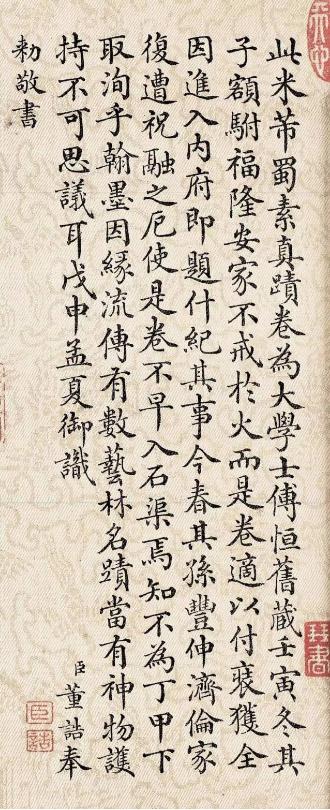 此米芾蜀素真蹟卷為大學士傅恒舊藏壬寅冬其
子額駙福隆安家不戒於火而是卷適以付裝獲全
因進入內府即題什紀其事今春其孫豐伸濟倫家
復遭祝融之厄使是卷不早入石渠焉知不為丁甲下
取洵乎翰墨因緣流傳有數藝林名蹟當有神物護
持不可思議耳戊申孟夏御識
臣董誥奉
勅敬書
臣
誥